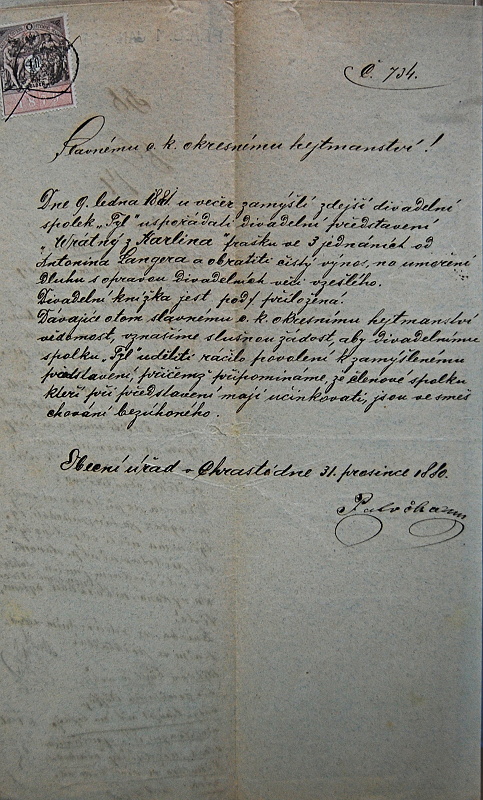 Č. 734.
Slavnému c. k. okresnímu hejtmanství!
Dne 9. ledna 1881 u večer zamýšlí zdejší divadelní
spolek „Tyl" uspořádati divadelní představení
„Vrátný z Karlína" frašku ve 3 jednáních od
Antonína Langera a obrátiti čistý výnos, na umoření
dluhu s opravou divadelních věcí vzešlého.
Divadelní knížka jest pod ∫ přiložena.
Dávajíc otom slavnému c. k. okresnímu hejtmanství
vědomost, vznašíme slušnou žádost, aby divadelnímu
spolku „Tyl" uděliti račilo povolení k zamýšlenému
představení, přičemž připomínáme, že členové spolku
kteří při představení mají účinkovati, jsou ve směs
chování bezúhoného.
Obecní úřad v Chrastě dne 31. prosince 1880.